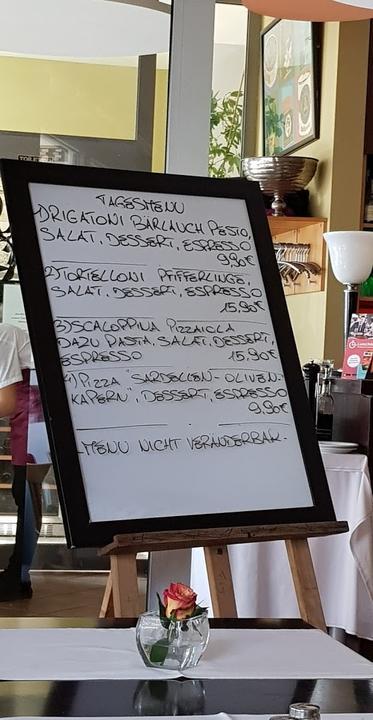 TAGESMENU
1) RIGATONI BÄRLAUCH PESTO,
SALAT, DESSERT, ESPRESSO
9,90€
2) TORTELLONI PFIFFERLINGE,
SALAT, DESSERT, ESPRESSO
15,90€
3) SCALOPPINA PIZZAIOLA
DAZU PASTA, SALAT, DESSERT,
ESPRESSO 15,90€
4) PIZZA "SARDELLEN-OLIVEN-
KAPERN", DESSERT, ESPRESSO
9,90€
-MENU NICHT VERÄNDERBAR-